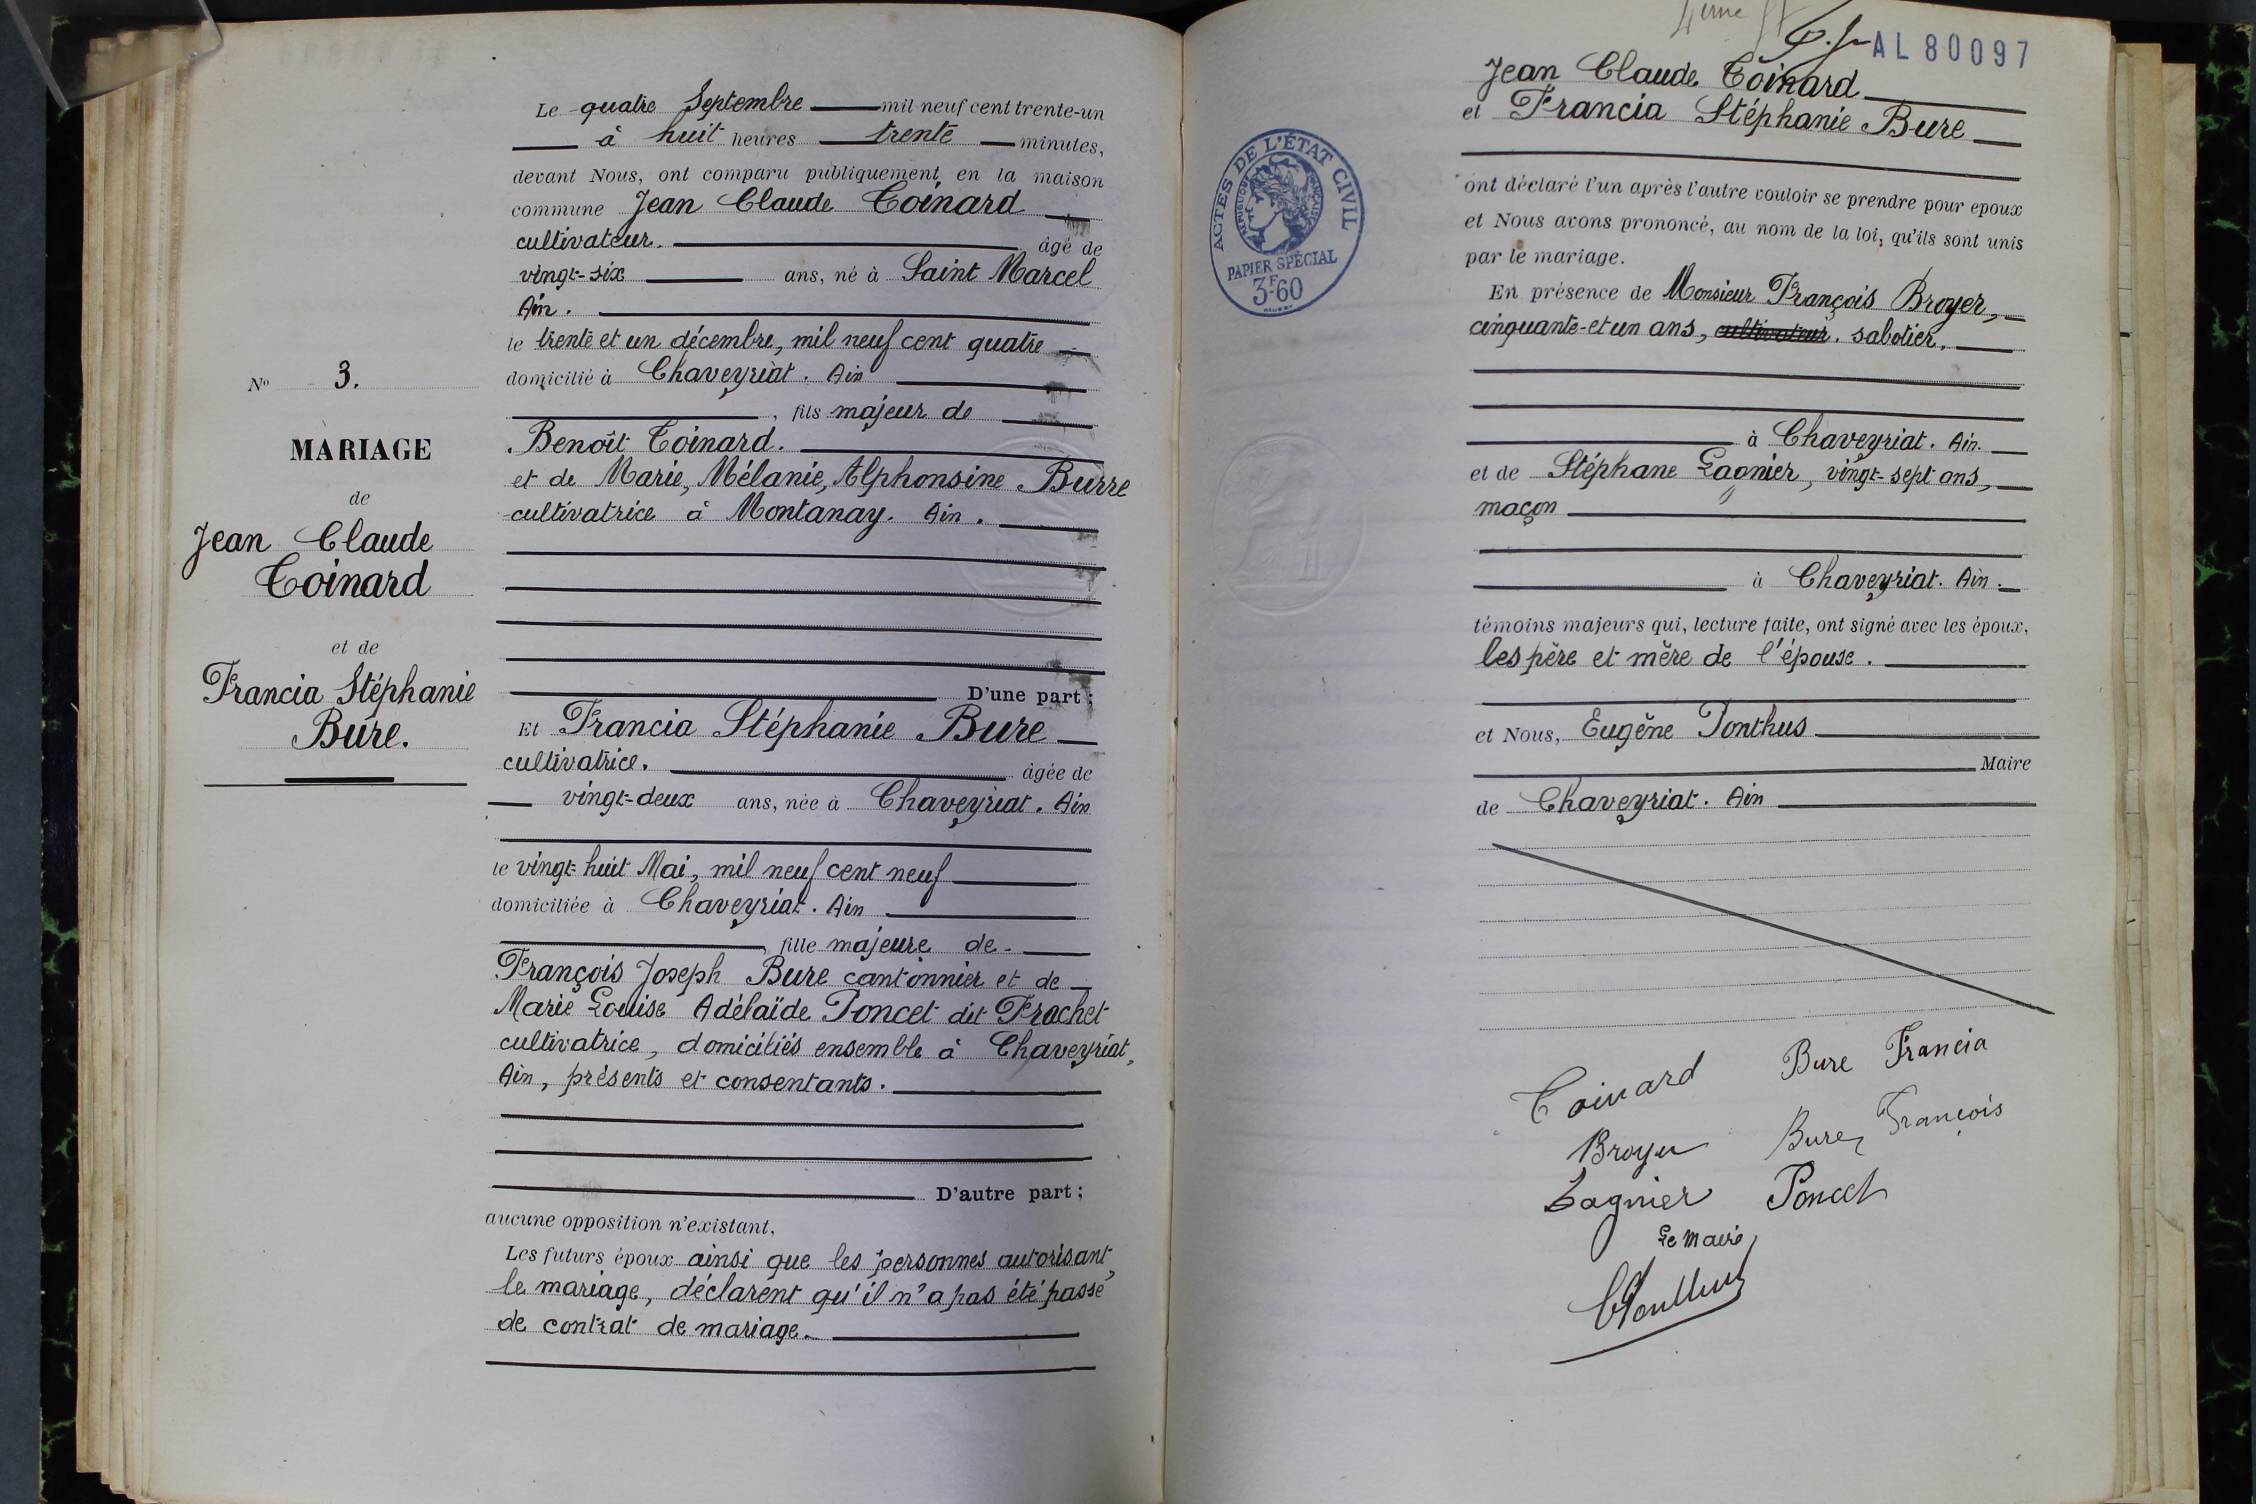 Le quatre Septembre mil neuf cent trente-un
à huit heures trente minutes,
devant Nous, ont comparu publiquement en la maison
commune Jean Claude Toinard
cultivateur. âgé de
vingt-six ans, né à Saint Marcel
Ain.
le trente et un décembre, mil neuf cent quatre
domicilié à Chaveyriat. Ain
, fils majeur de
Benoît Toinard.
et de Marie, Mélanie, Alphonsine Burre
cultivatrice à Montanay. Ain.
D'une part;
Nº 3.
MARIAGE
de
Jean Claude
Toinard
et de
Francia Stéphanie
Bure.
Et Francia Stéphanie Bure
cultivatrice. âgée de
vingt-deux ans, née à Chaveyriat. Ain
le vingt-huit Mai, mil neuf cent neuf
domiciliée à Chaveyriat. Ain
, fille majeure de
François Joseph Bure cantonnier et de
Marie Louise Adélaïde Poncet dit Frachet
cultivatrice, domiciliés ensemble à Chaveyriat,
Ain, présents et consentants.
D'autre part;
aucune opposition n'existant,
Les futurs époux ainsi que les personnes autorisant
le mariage, déclarent qu'il n'a pas été passé
de contrat de mariage.
4ème
AL 80097
Jean Claude Toinard
et Francia Stéphanie Bure
ACTES DE L'ÉTAT CIVIL
RÉPUBLIQUE FRANÇAISE
PAPIER SPÉCIAL
3F60
ont déclaré l'un après l'autre vouloir se prendre pour époux
et Nous avons prononcé, au nom de la loi, qu'ils sont unis
par le mariage.
En présence de Monsieur François Broyer,
cinquante-et un ans, cultivateur. sabotier.
à Chaveyriat. Ain.
et de Stéphane Lagnier, vingt-sept ans,
maçon
à Chaveyriat. Ain.
témoins majeurs qui, lecture faite, ont signé avec les époux,
les père et mère de l'épouse.
et Nous, Eugène Ponthus
Maire
de Chaveyriat. Ain
Toinard Bure Francia
Broyer Bure François
Lagnier Poncet
Le Maire